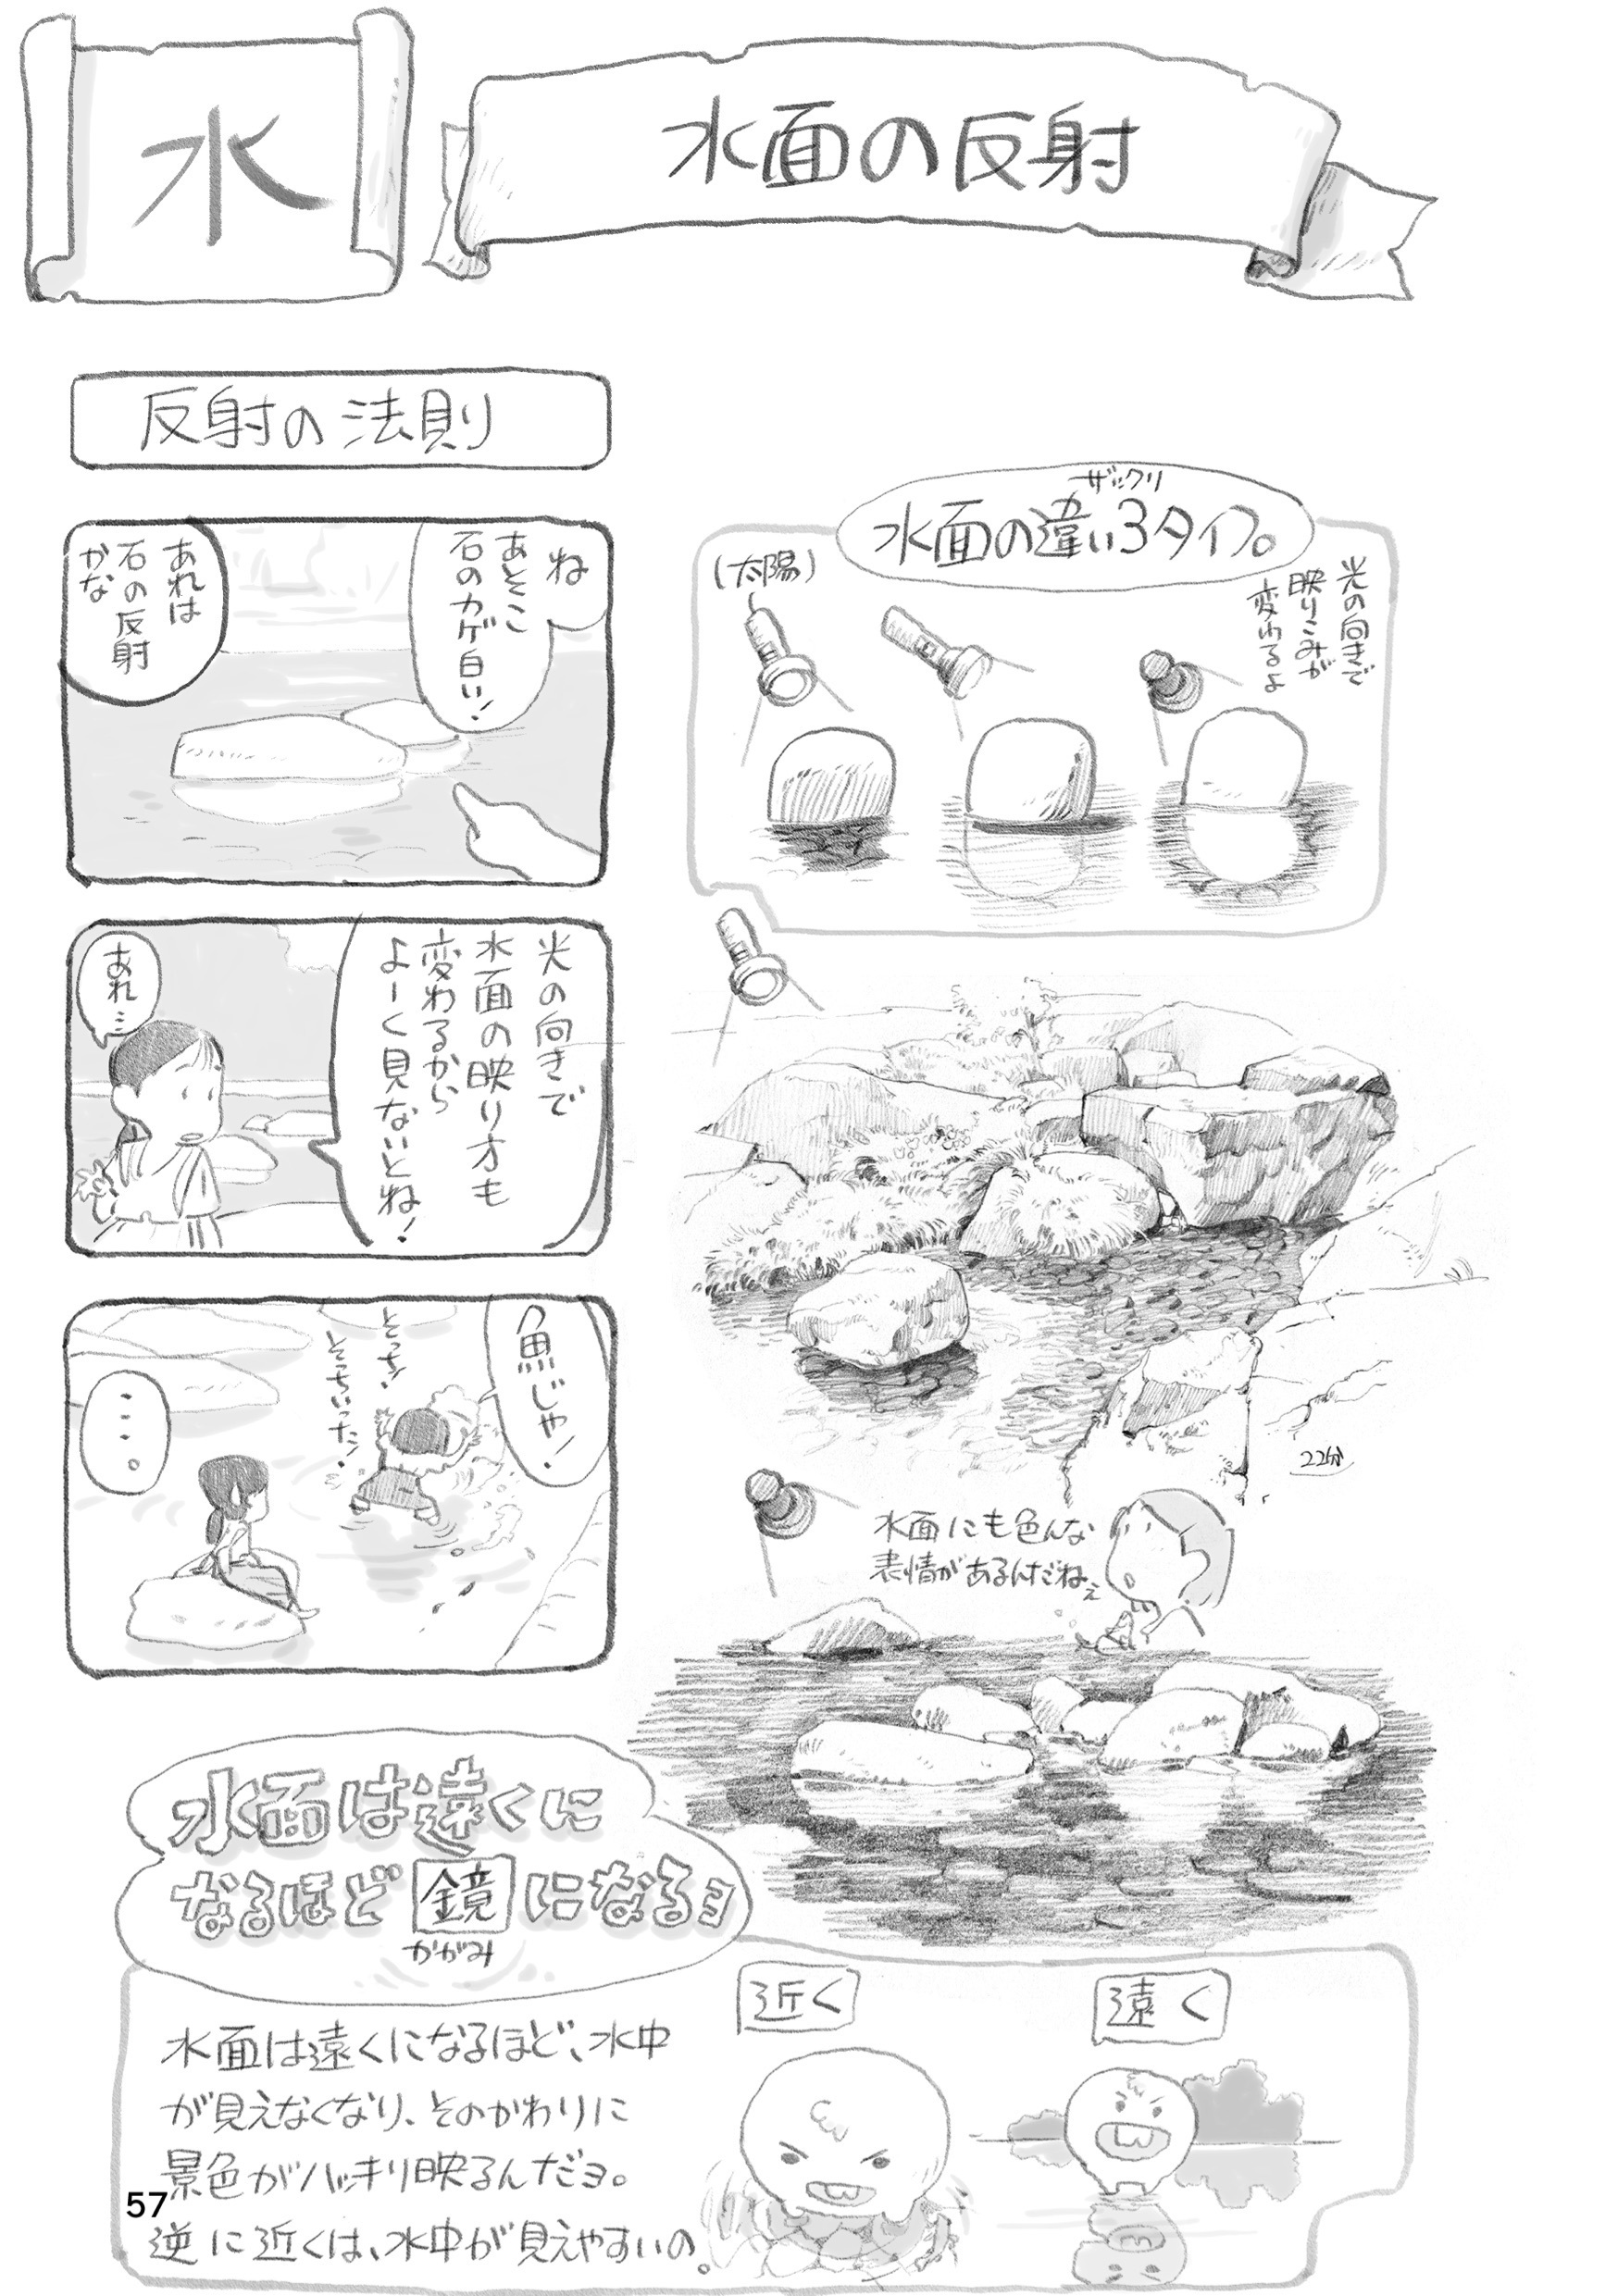 水
水面の反射
反射の法則
ね
あそこ
石のカゲ白い!
あれは
石の反射
かな
光の向きで
水面の映り方も
変わるから
よーく見ないとね!
あれ…
魚じゃ!
とっち!
とっちいった!
・・・・。
ザックリ
水面の違い3タイプ。
(太陽)
光の向きで
映りこみが
変わるよ
22分
水面にも色んな
表情があるんだねぇ
水面は遠くに
なるほど鏡になるヨ
かがみ
水面は遠くになるほど、水中
が見えなくなり、そのかわりに
景色がハッキリ映るんだヨ。
逆に近くは、水中が見えやすいの。
近く
遠く
57